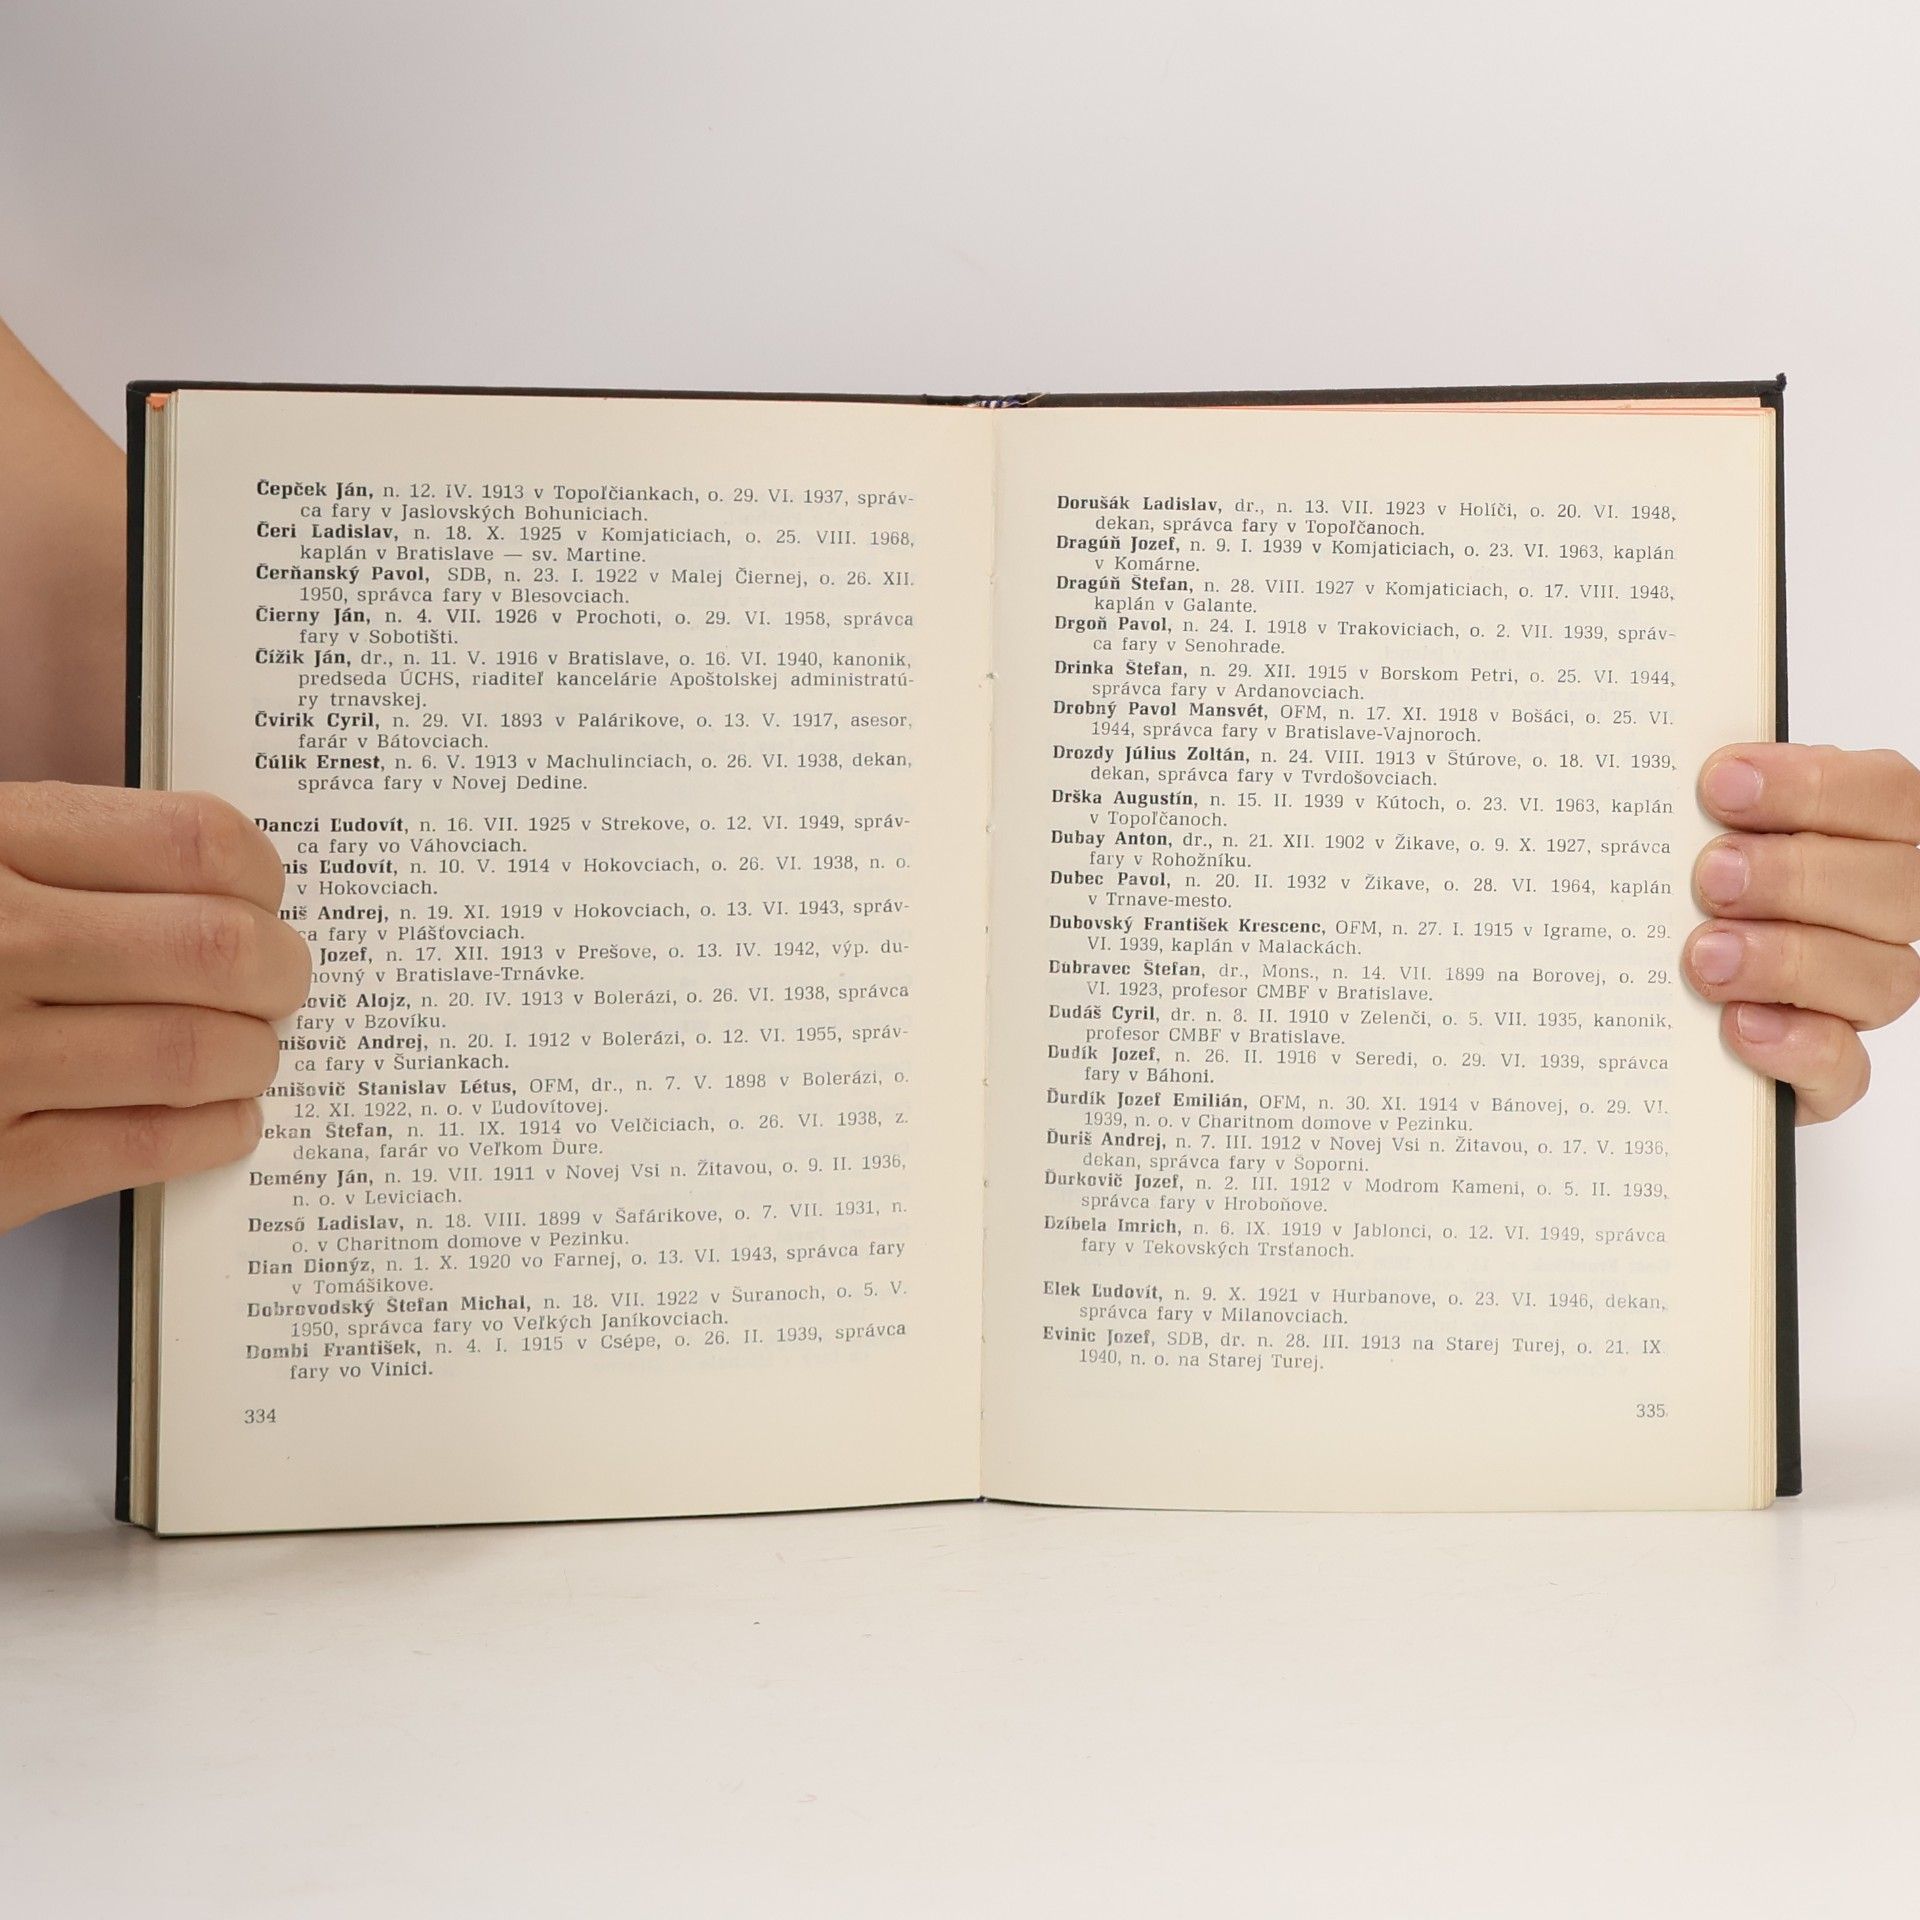 Čepček Ján, n. 12. IV. 1913 v Topoľčiankach, o. 29. VI. 1937, správ-
ca fary v Jaslovských Bohuniciach.
Čeri Ladislav, n. 18. X. 1925 v Komjaticiach, o. 25. VIII. 1968,
kaplán v Bratislave — sv. Martine.
Čerňanský Pavol, SDB, n. 23. I. 1922 v Malej Čiernej, o. 26. XII.
1950, správca fary v Blesovciach.
Čierny Ján, n. 4. VII. 1926 v Prochoti, o. 29. VI. 1958, správca
fary v Sobotišti.
Čížik Ján, dr., n. 11. V. 1916 v Bratislave, o. 16. VI. 1940, kanonik,
predseda ÚCHS, riaditeľ kancelárie Apoštolskej administratú-
ry trnavskej.
Čvirik Cyril, n. 29. VI. 1893 v Palárikove, o. 13. V. 1917, asesor,
farár v Bátovciach.
Čúlik Ernest, n. 6. V. 1913 v Machulinciach, o. 26. VI. 1938, dekan,
správca fary v Novej Dedine.
Danczi Ľudovít, n. 16. VII. 1925 v Strekove, o. 12. VI. 1949, správ-
ca fary vo Váhovciach.
nis Ľudovít, n. 10. V. 1914 v Hokovciach, o. 26. VI. 1938, n. o.
v Hokovciach.
niš Andrej, n. 19. XI. 1919 v Hokovciach, o. 13. VI. 1943, správ-
ca fary v Plášťovciach.
Jozef, n. 17. XII. 1913 v Prešove, o. 13. IV. 1942, výp. du-
hovný v Bratislave-Trnávke.
ovič Alojz, n. 20. IV. 1913 v Bolerázi, o. 26. VI. 1938, správca
fary v Bzovíku.
nišovič Andrej, n. 20. I. 1912 v Bolerázi, o. 12. VI. 1955, správ-
ca fary v Šuriankach.
anišovič Stanislav Létus, OFM, dr., n. 7. V. 1898 v Bolerázi, o.
12. XI. 1922, n. o. v Ľudovítovej.
ekan Štefan, n. 11. IX. 1914 vo Velčiciach, o. 26. VI. 1938, z.
dekana, farár vo Veľkom Ďure.
Demény Ján, n. 19. VII. 1911 v Novej Vsi n. Žitavou, o. 9. II. 1936,
n. o. v Leviciach.
Dezső Ladislav, n. 18. VIII. 1899 v Šafárikove, o. 7. VII. 1931, n.
o. v Charitnom domove v Pezinku.
Dian Dionýz, n. 1. X. 1920 vo Farnej, o. 13. VI. 1943, správca fary
v Tomášikove.
Dobrovodský Štefan Michal, n. 18. VII. 1922 v Šuranoch, o. 5. V.
1950, správca fary vo Veľkých Janíkovciach.
Dombi František, n. 4. I. 1915 v Csépe, o. 26. II. 1939, správca
fary vo Vinici.
334
Dorušák Ladislav, dr., n. 13. VII. 1923 v Holíči, o. 20. VI. 1948,
dekan, správca fary v Topoľčanoch.
Dragúň Jozef, n. 9. I. 1939 v Komjaticiach, o. 23. VI. 1963, kaplán
v Komárne.
Dragúň Štefan, n. 28. VIII. 1927 v Komjaticiach, o. 17. VIII. 1948,
kaplán v Galante.
Drgoň Pavol, n. 24. I. 1918 v Trakoviciach, o. 2. VII. 1939, správ-
ca fary v Senohrade.
Drinka Štefan, n. 29. XII. 1915 v Borskom Petri, o. 25. VI. 1944,
správca fary v Ardanovciach.
Drobný Pavol Mansvét, OFM, n. 17. XI. 1918 v Bošáci, o. 25. VI.
1944, správca fary v Bratislave-Vajnoroch.
Drozdy Július Zoltán, n. 24. VIII. 1913 v Štúrove, o. 18. VI. 1939,
dekan, správca fary v Tvrdošovciach.
Drška Augustín, n. 15. II. 1939 v Kútoch, o. 23. VI. 1963, kaplán
v Topoľčanoch.
Dubay Anton, dr., n. 21. XII. 1902 v Žikave, o. 9. X. 1927, správca
fary v Rohožníku.
Dubec Pavol, n. 20. II. 1932 v Žikave, o. 28. VI. 1964, kaplán
v Trnave-mesto.
Dubovský František Krescenc, OFM, n. 27. I. 1915 v Igrame, o. 29.
VI. 1939, kaplán v Malackách.
Dúbravec Štefan, dr., Mons., n. 14. VII. 1899 na Borovej, o. 29.
VI. 1923, profesor CMBF v Bratislave.
Dudáš Cyril, dr. n. 8. II. 1910 v Zelenči, o. 5. VII. 1935, kanonik,
profesor CMBF v Bratislave.
Dudík Jozef, n. 26. II. 1916 v Seredi, o. 29. VI. 1939, správca
fary v Báhoni.
Ďurdík Jozef Emilián, OFM, n. 30. XI. 1914 v Bánovej, o. 29. VI.
1939, n. o. v Charitnom domove v Pezinku.
Ďuriš Andrej, n. 7. III. 1912 v Novej Vsi n. Žitavou, o. 17. V. 1936,
dekan, správca fary v Šoporni.
Ďurkovič Jozef, n. 2. III. 1912 v Modrom Kameni, o. 5. II. 1939,
správca fary v Hroboňove.
Dzíbela Imrich, n. 6. IX. 1919 v Jablonci, o. 12. VI. 1949, správca
fary v Tekovských Trsťanoch.
Elek Ľudovít, n. 9. X. 1921 v Hurbanove, o. 23. VI. 1946, dekan,
správca fary v Milanovciach.
Evinic Jozef, SDB, dr. n. 28. III. 1913 na Starej Turej, o. 21. IX.
1940, n. o. na Starej Turej.
335